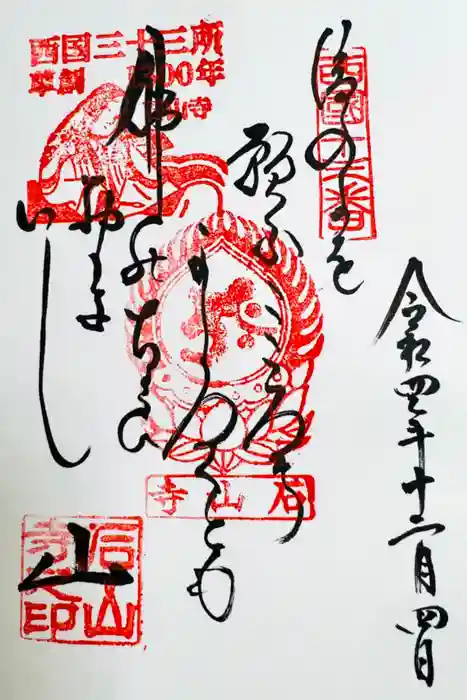 令和四年十二月四日
西国十三番
後のよを
願ふこゝろハ
かろくとも
佛のちかひ
おもき
いし
山
西国三十三所
草創1300年
石山寺
石山寺
石山寺之印